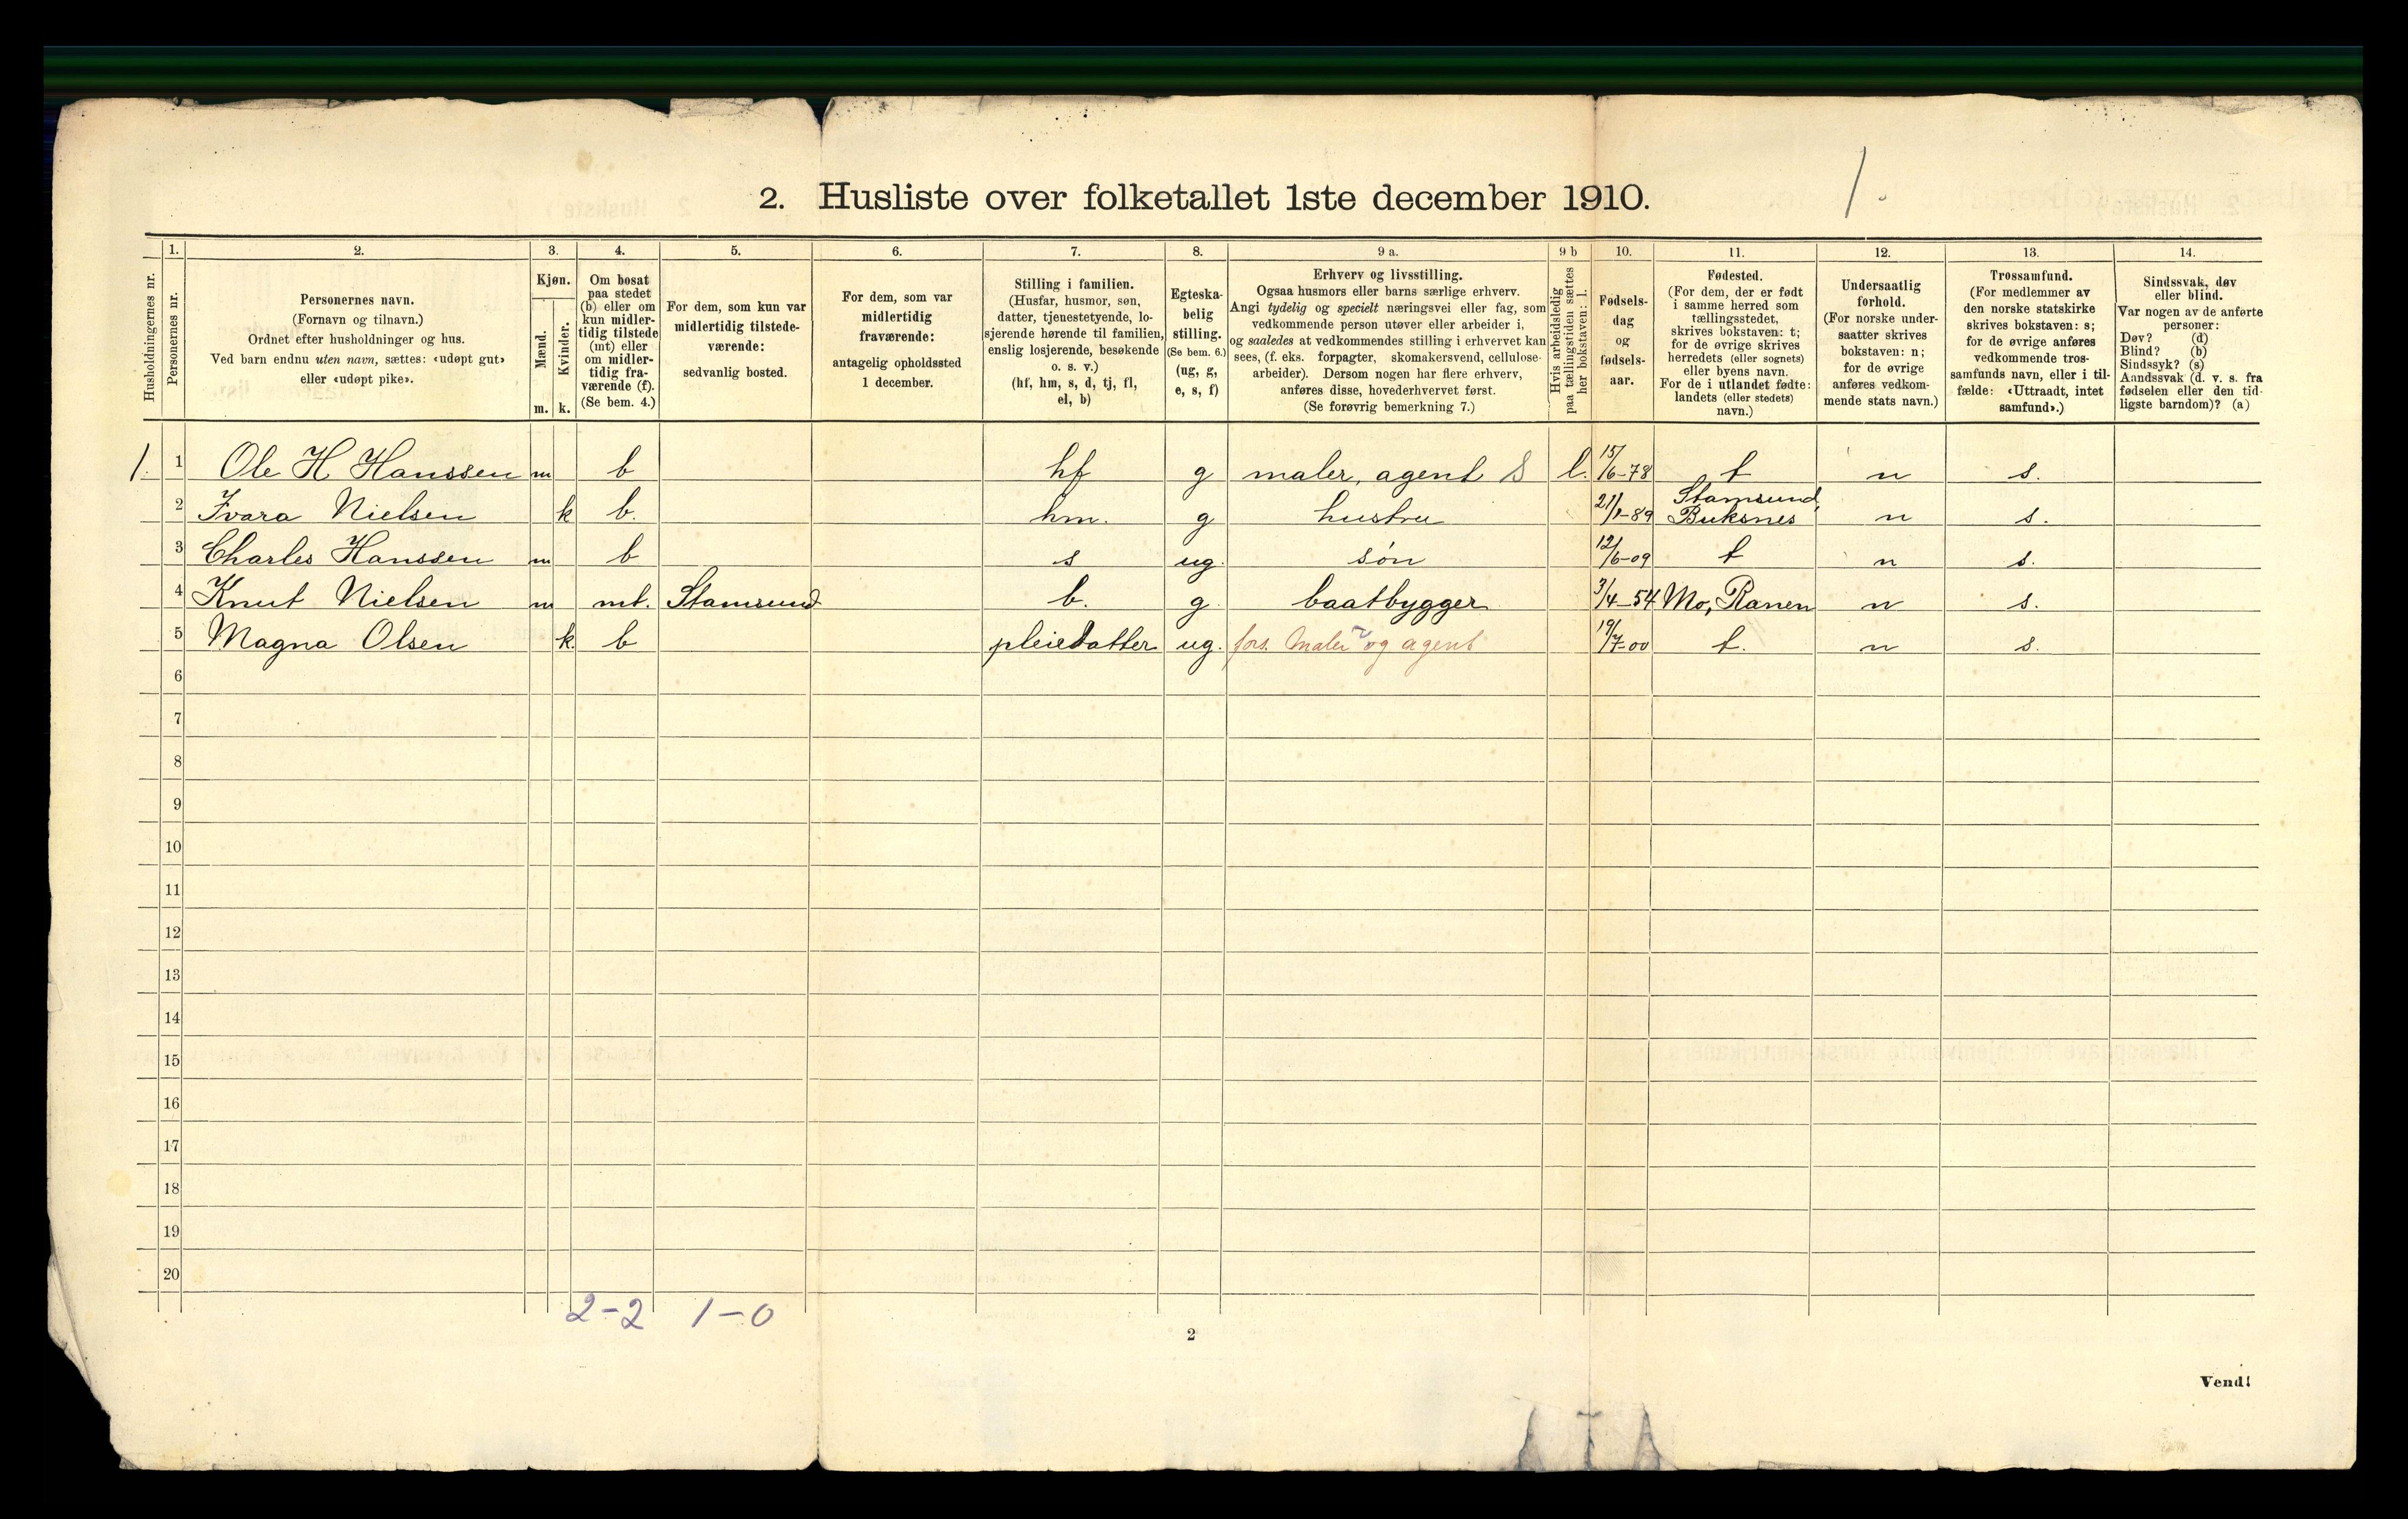 1.
2. Husliste over folketallet 1ste december 1910.
Husholdningernes nr.
1.
Personernes nr.
2.
Personernes navn.
(Fornavn og tilnavn.)
Ordnet efter husholdninger og hus.
Ved barn endnu uten navn, sættes: «udøpt gut»
eller «udøpt pike».
3.
Kjøn.
Mænd.
m.
Kvinder.
k.
4.
Om bosat
paa stedet
(b) eller om
kun midler-
tidig tilstede
(mt) eller
om midler-
tidig fra-
værende (f).
(Se bem. 4.)
5.
For dem, som kun var
midlertidig tilstede-
værende:
sedvanlig bosted.
6.
For dem, som var
midlertidig
fraværende:
antagelig opholdssted
1 december.
7.
Stilling i familien.
(Husfar, husmor, søn,
datter, tjenestetyende, lo-
sjerende hørende til familien,
enslig losjerende, besøkende
o. s. v.)
(hf, hm, s, d, tj, fl,
el, b)
8.
Egteska-
belig
stilling.
(Se bem. 6.)
(ug, g,
e, s, f)
9 a.
Erhverv og livsstilling.
Ogsaa husmors eller barns særlige erhverv.
Angi tydelig og specielt næringsvei eller fag, som
vedkommende person utøver eller arbeider i,
og saaledes at vedkommendes stilling i erhvervet kan
sees, (f. eks. forpagter, skomakersvend, cellulose-
arbeider). Dersom nogen har flere erhverv,
anføres disse, hovederhvervet først.
(Se forøvrig bemerkning 7.)
9 b
Hvis arbeidsledig
paa tællingstiden sættes
her bokstaven: l.
10.
Fødsels-
dag
og
fødsels-
aar.
11.
Fødested.
(For dem, der er født
i samme herred som
tællingsstedet,
skrives bokstaven: t;
for de øvrige skrives
herredets (eller sognets)
eller byens navn.
For de i utlandet fødte:
landets (eller stedets)
navn.)
12.
Undersaatlig
forhold.
(For norske under-
saatter skrives
bokstaven: n;
for de øvrige
anføres vedkom-
mende stats navn.)
13.
Trossamfund.
(For medlemmer av
den norske statskirke
skrives bokstaven: s;
for de øvrige anføres
vedkommende tros-
samfunds navn, eller i til-
fælde: «Uttraadt, intet
samfund».)
14.
Sindssvak, døv
eller blind.
Var nogen av de anførte
personer:
Døv? (d)
Blind? (b)
Sindssyk? (s)
Aandssvak (d. v. s. fra
fødselen eller den tid-
ligste barndom)? (a)
1. 1 Ole H Hanssen m b hf g maler, agent S l. 15/6-78 t n s.
2 Ivara Nielsen k b. hm. g hustru 21/1-89 Stamsund, Buksnes n s.
3 Charles Hanssen m b s ug. søn 12/6-09 t n s.
4 Knut Nielsen m mt. Stamsund b. g. baatbygger 3/4-54 Mo, Ranen n s.
5 Magna Olsen k. b pleiedatter ug. fors. Maler og agent 19/7-00 t. n s.
6
7
8
9
10
11
12
13
14
15
16
17
18
19
20
2-2 1-0
2
Vend!